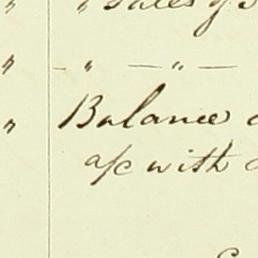 " " Sales of
" – " – " –
" Balance
a/c with